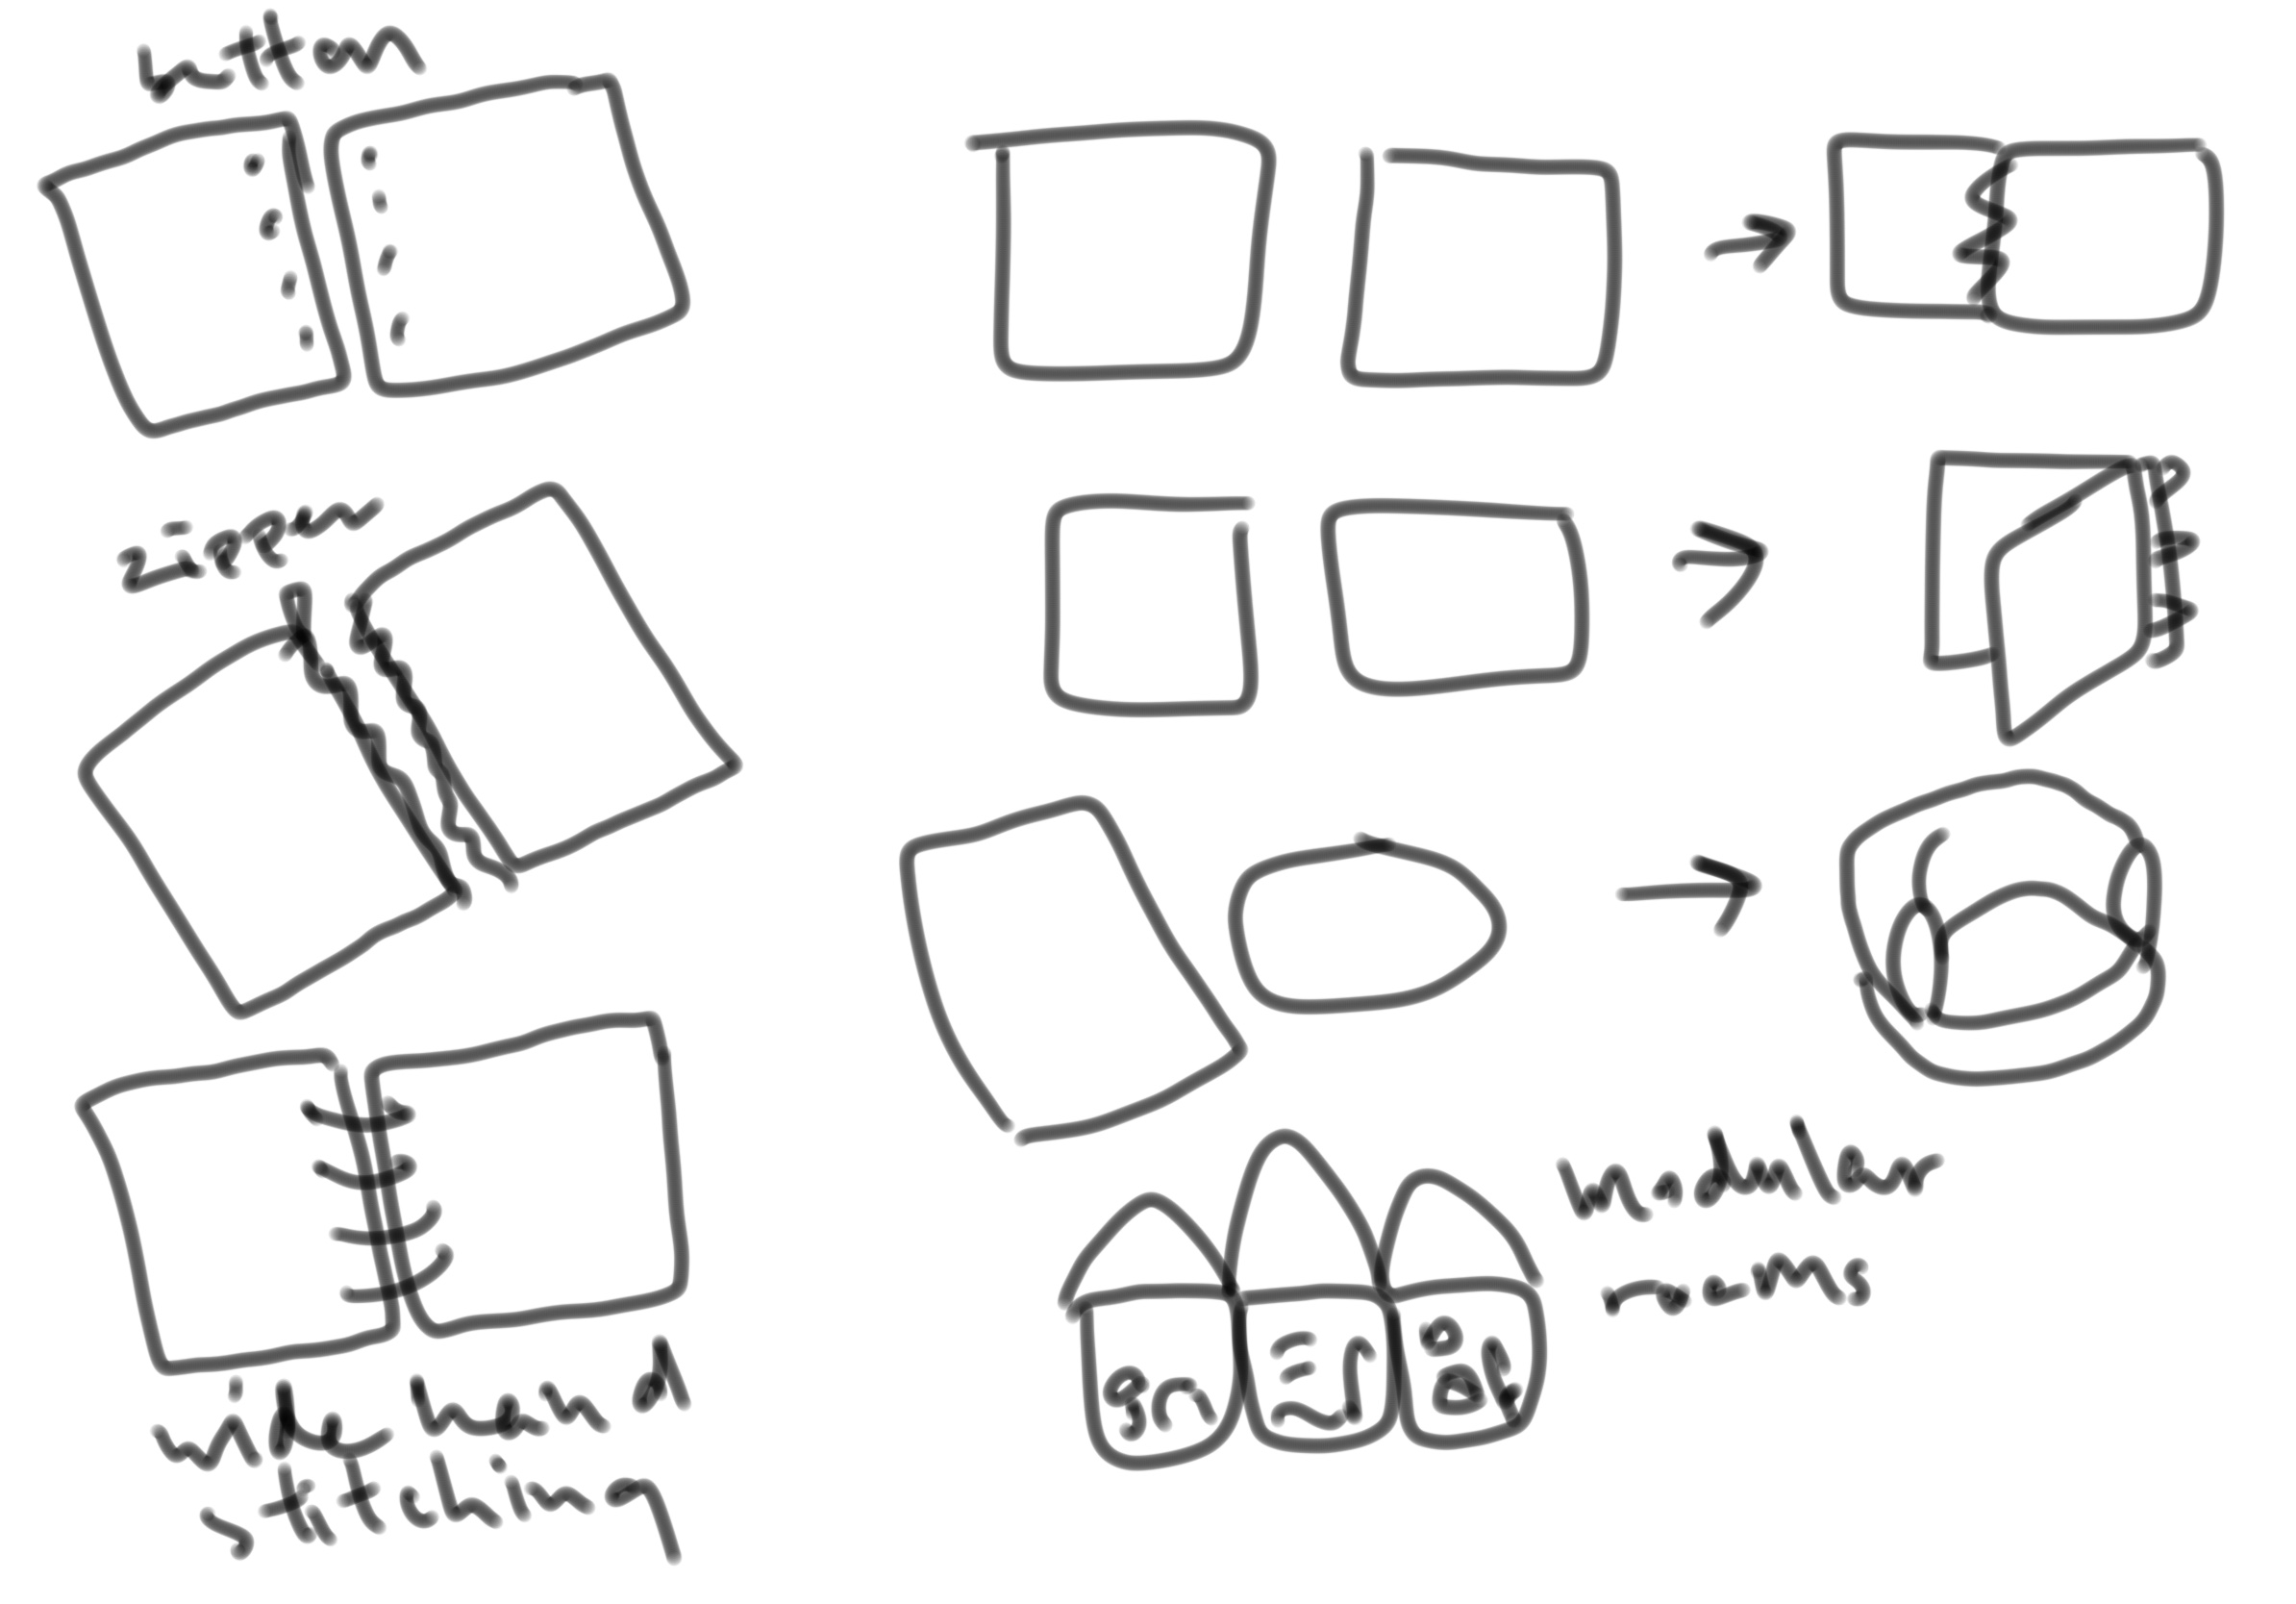 button
zipper
wide hand
stitching
modular
rooms